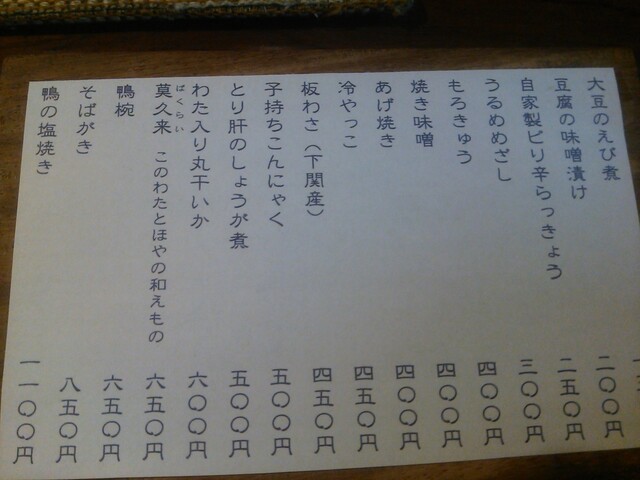 大豆のえび煮
豆腐の味噌漬け 二〇〇円
自家製ピリ辛らっきょう 二五〇円
うるめめざし 三〇〇円
もろきゅう 四〇〇円
焼き味噌 四〇〇円
あげ焼き 四〇〇円
冷やっこ 四五〇円
板わさ（下関産） 四五〇円
子持ちこんにゃく 五〇〇円
とり肝のしょうが煮 五〇〇円
わた入り丸干いか 六〇〇円
ばくらい
莫久来 このわたとほやの和えもの 六五〇円
鴨椀 六五〇円
そばがき 八五〇円
鴨の塩焼き 一一〇〇円